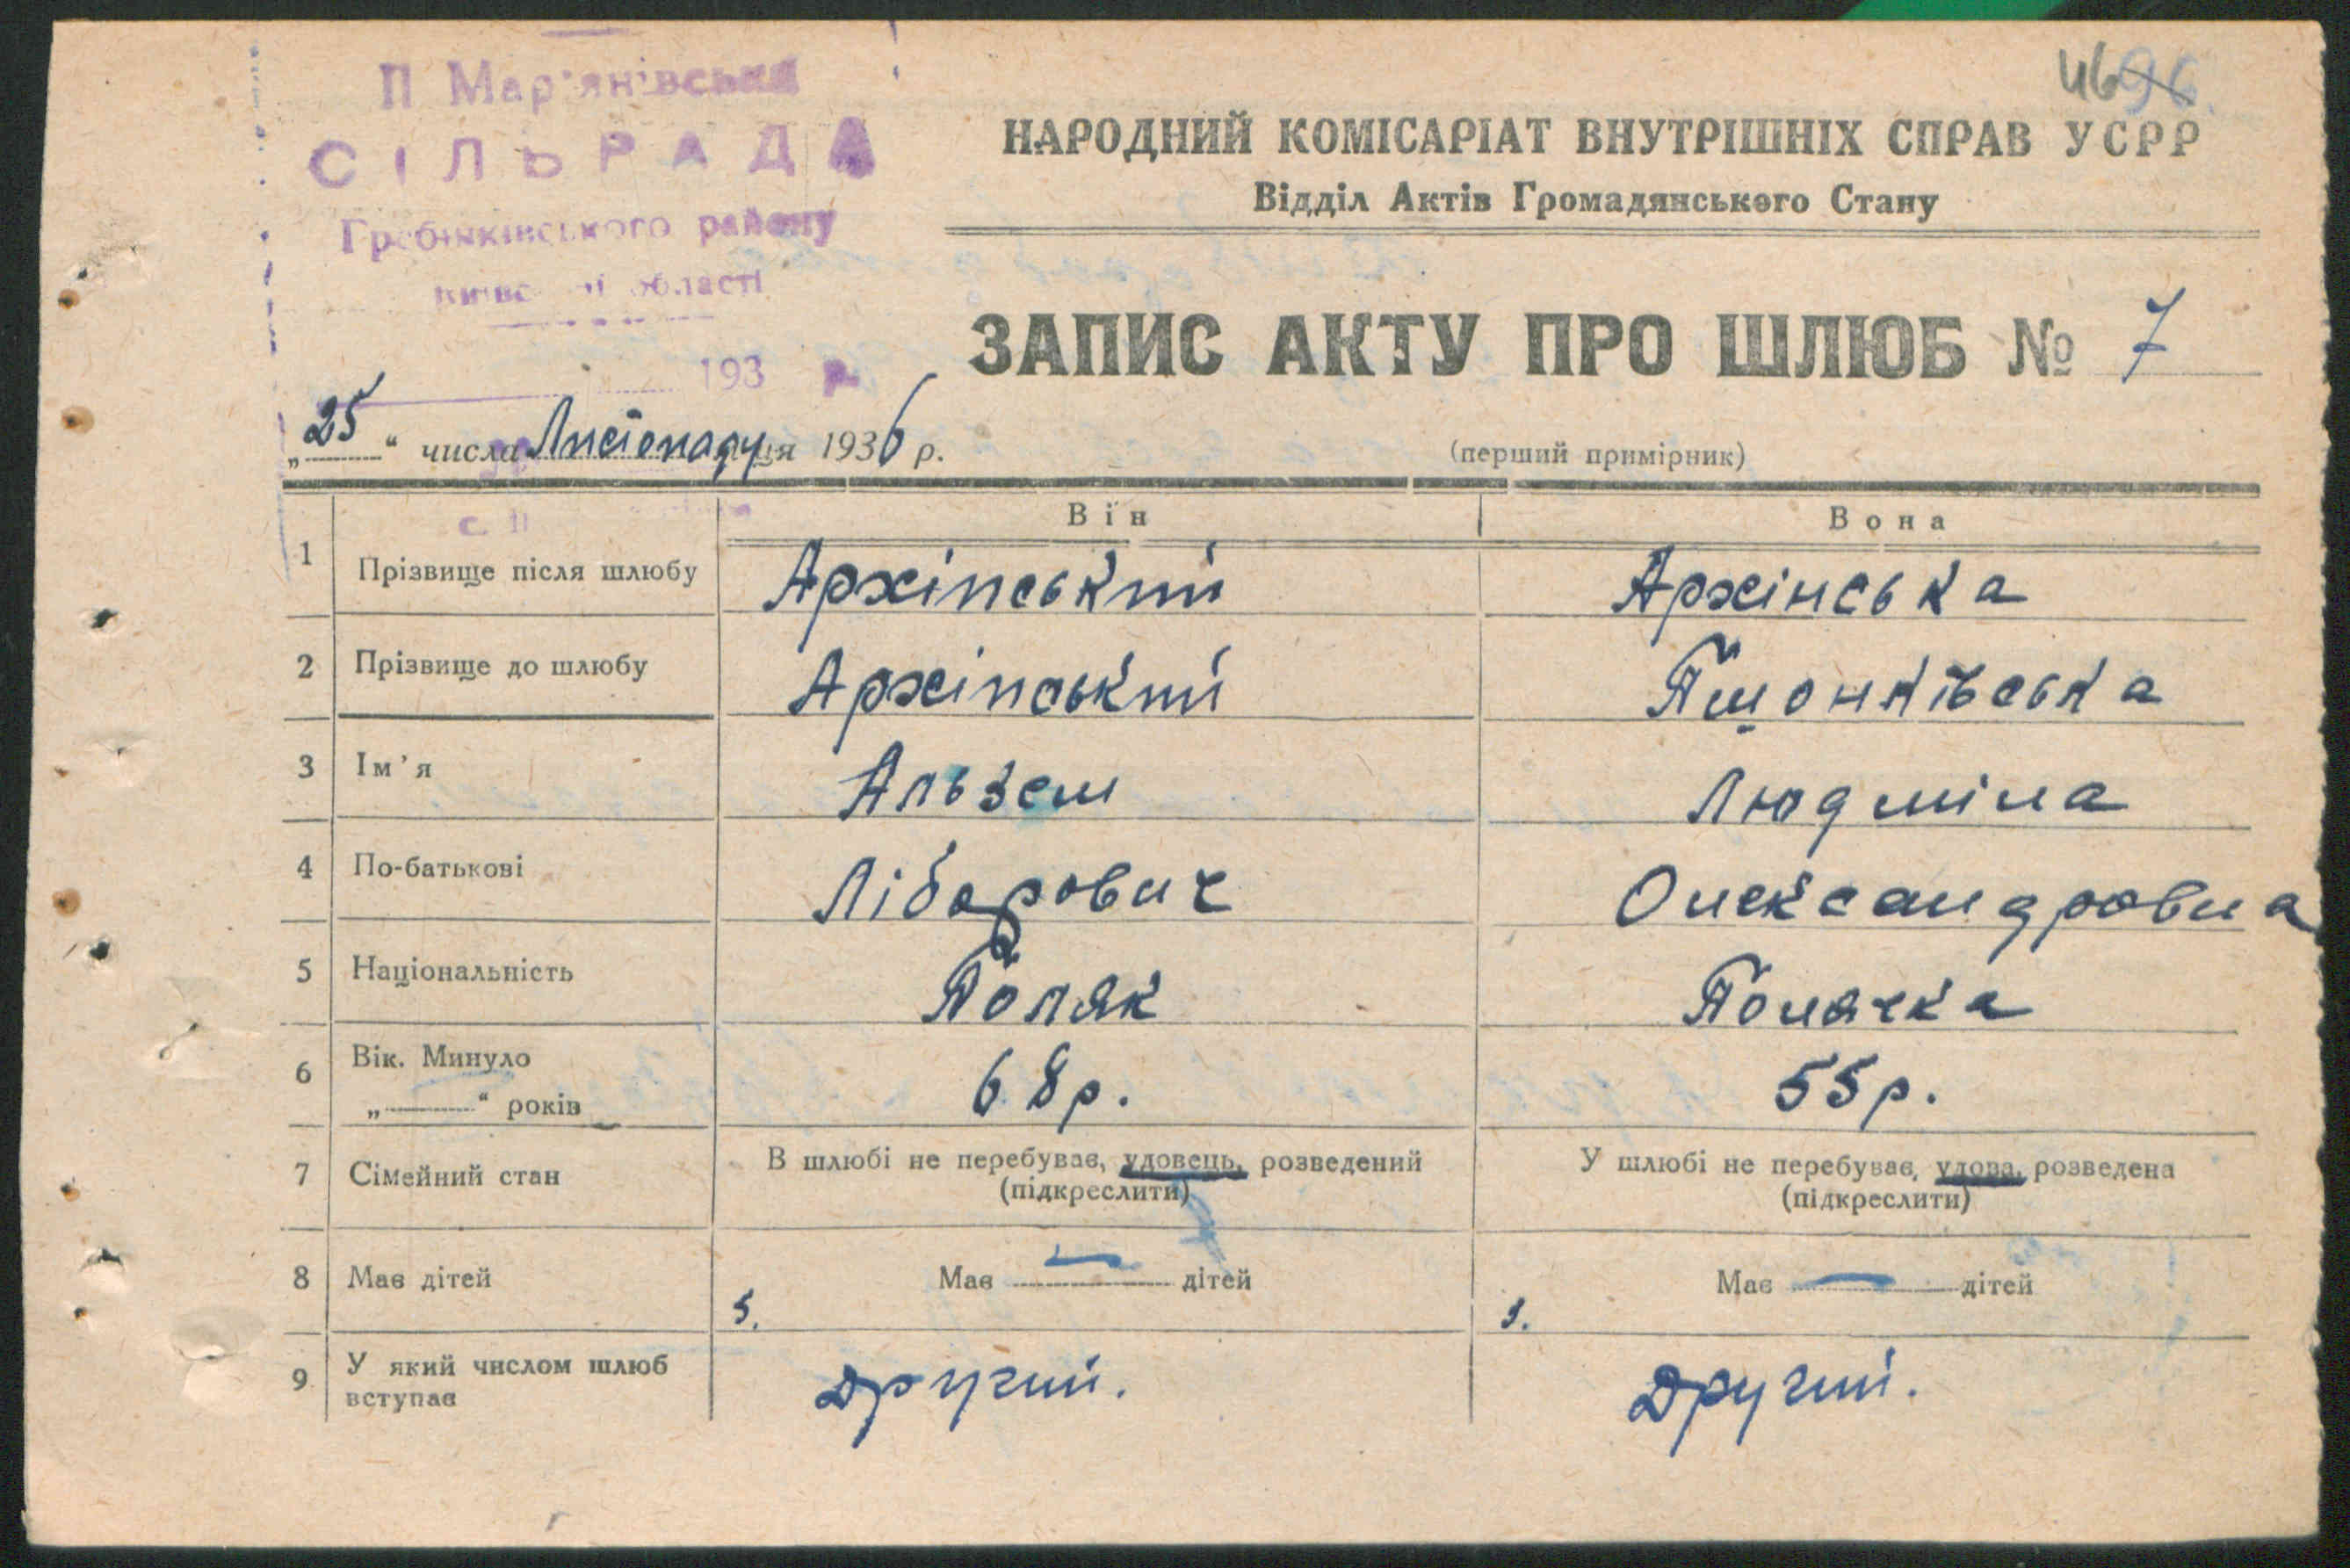 46 96
П Мар'янівська
СІЛЬРАДА
Гребінківського району
Київської області
193 р.
НАРОДНИЙ КОМІСАРІАТ ВНУТРІШНІХ СПРАВ УСРР
Відділ Актів Громадянського Стану
ЗАПИС АКТУ ПРО ШЛЮБ № 7
„25“ числа Листопаду ця 1936 р.
(перший примірник)
Він Вона
1 Прізвище після шлюбу Архіпський Архінська
2 Прізвище до шлюбу Архіпський Пшонківська
3 Ім'я Альзем Людміла
4 По-батькові Ліборович Олександровна
5 Національність Поляк Полячка
6 Вік. Минуло
„———“ років 68р. 55р.
7 Сімейний стан В шлюбі не перебував, удовець, розведений У шлюбі не перебував, удова, розведена
(підкреслити) (підкреслити)
8 Має дітей Має — дітей Має — дітей
9 У який числом шлюб
вступав другий. другий.